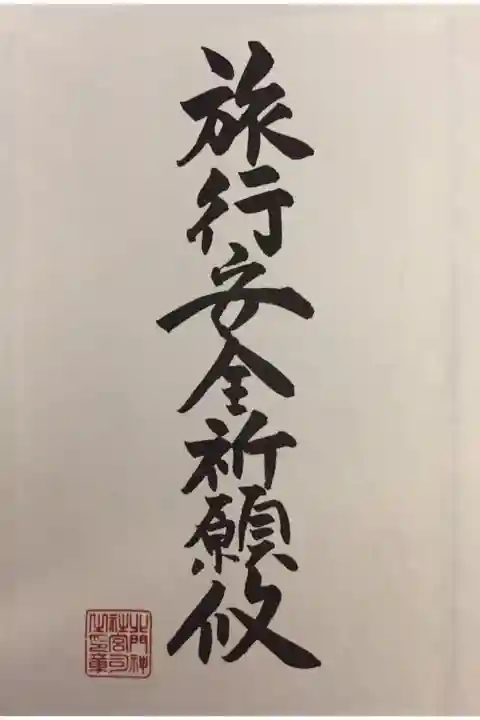 旅行安全祈願攸
北門神
社宮司
之印章